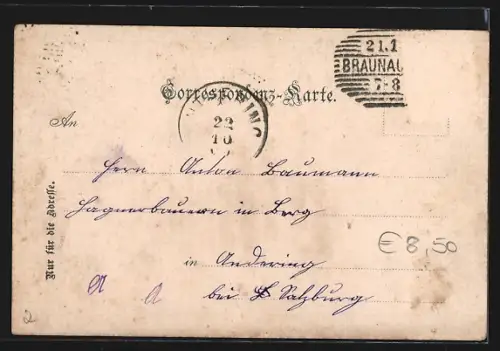 21.1
BRAUNAU
7-8
Correspondenz-Karte.
22
10
An
Herrn Anton Baumann
Hagnerbauern in Berg
in Andering
bei Salzburg
Nur für die Adresse.
€8,50
2